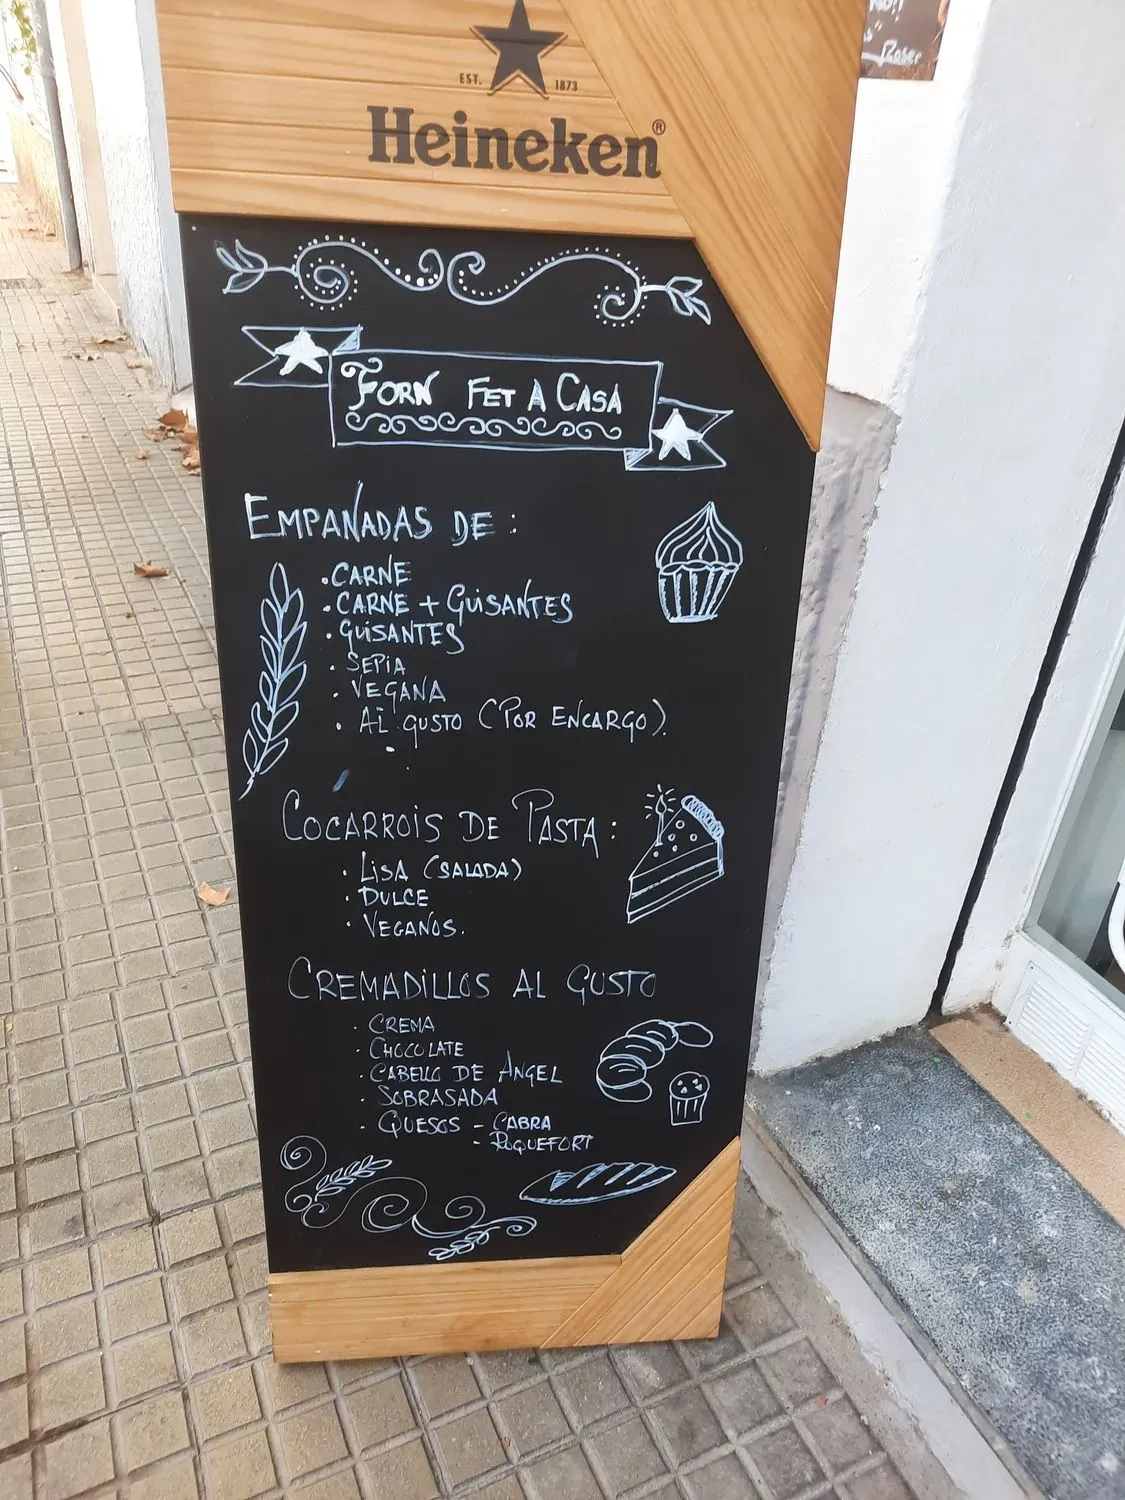 EST. 1873
Heineken®
Roser
FORN FET A CASA
EMPANADAS DE :
· CARNE
· CARNE + GUISANTES
· GUISANTES
· SEPIA
· VEGANA
· AL GUSTO (POR ENCARGO).
COCARROIS DE PASTA :
· LISA (SALADA)
· DULCE
· VEGANOS.
CREMADILLOS AL GUSTO
· CREMA
· CHOCOLATE
· CABELLO DE ANGEL
· SOBRASADA
· QUESOS - CABRA
- ROQUEFORT